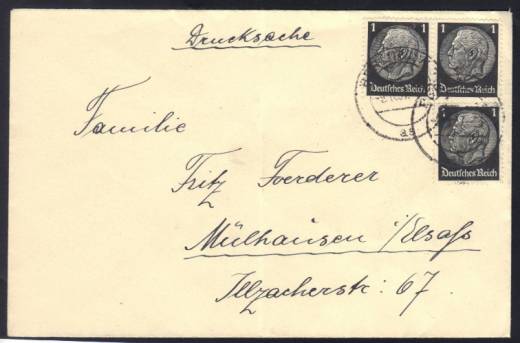 Drucksache
1 1
Deutsches Reich Deutsches Reich
1
Deutsches Reich
Familie
Fritz Foerderer
Mülhausen i/Elsaß
Illzacherstr: 67